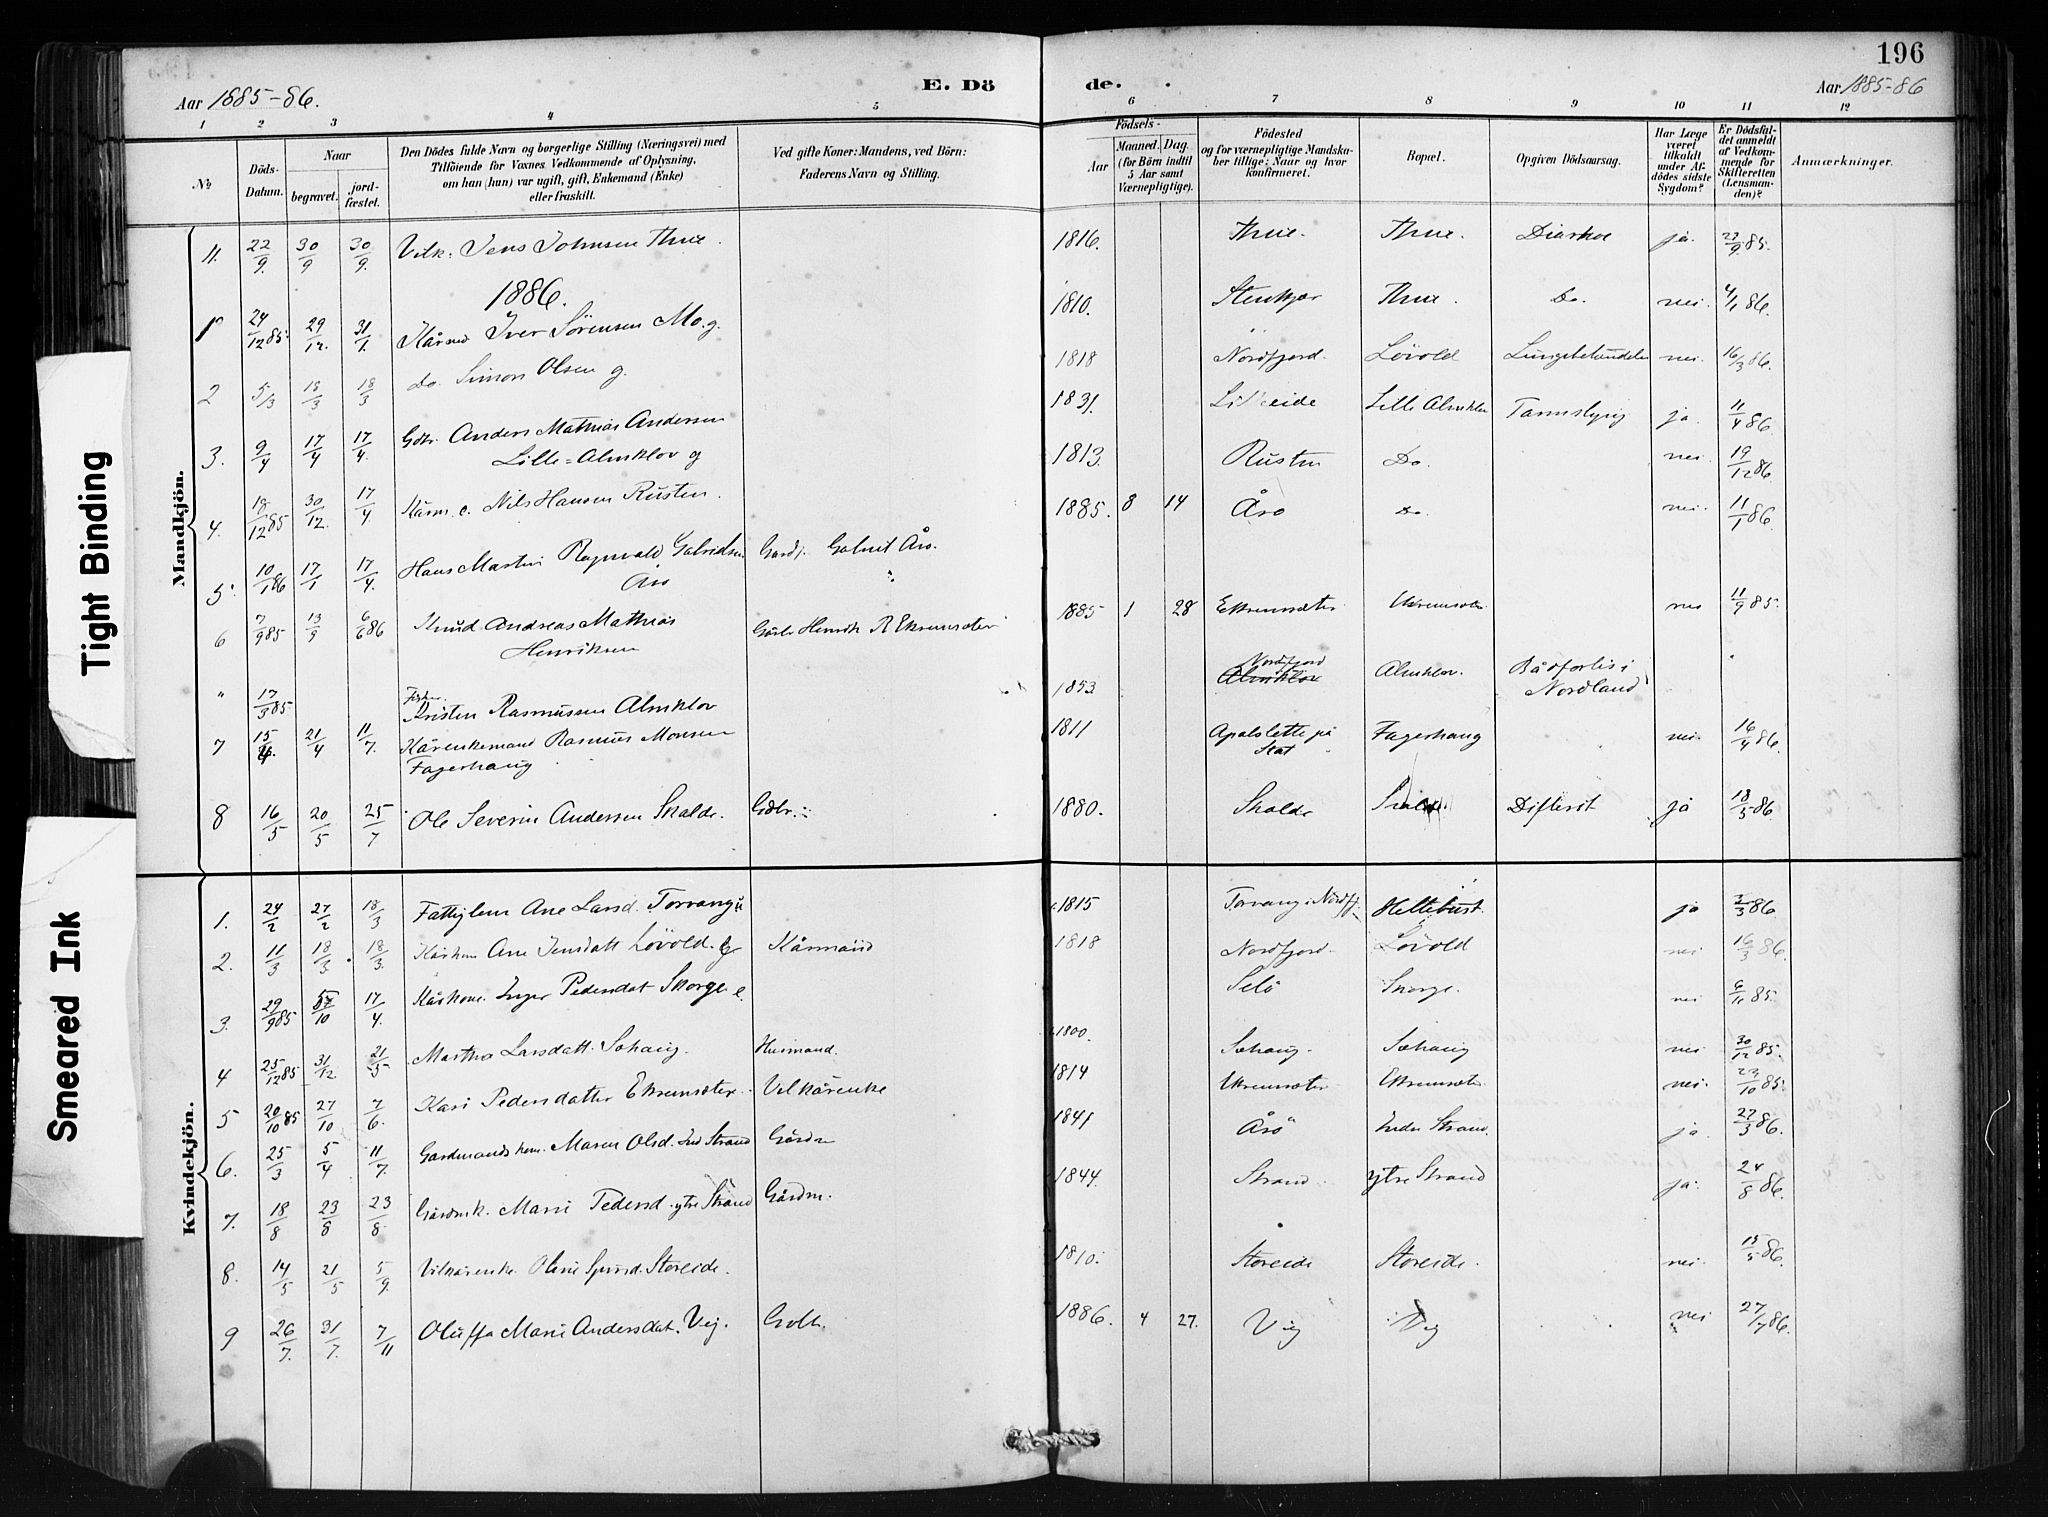 Tight Binding
Smeared Ink
196
Aar 1885-86.
E. Dö
de.
Aar 1885-86
1 2 3 4 5 6 7 8 9 10 11 12
№
Döds-Datum.
Naar
begravet.
jord-fæstet.
Den Dödes fulde Navn og borgerlige Stilling (Næringsvei) med
Tilföiende for Voxnes Vedkommende af Oplysning,
om han (hun) var ugift, gift, Enkemand (Enke)
eller fraskilt.
Ved gifte Koner: Mandens, ved Börn:
Faderens Navn og Stilling.
Födsels-
Aar
Maaned. Dag.
(for Börn indtil
5 Aar samt
Værnepligtige).
Födested
og for værnepligtige Mandska-
ber tillige: Naar og hvor
konfirmeret.
Bopæl.
Opgiven Dödsaarsag.
Har Læge
været
tilkaldt
under Af-
dödes sidste
Sygdom?
Er Dödsfal-
det anmeldt
af Vedkom-
mende for
Skifteretten
(Lensman-
den)?
Anmærkninger.
Mandkjön.
11. 22/9. 30/9 30/9. Vilk: Jens Johnsen Thue. 1816. Thue. Thue. Diarhoe ja. 22/9 85.
1886.
1 24/12 85. 29/12. 31/1. Kårmd Iver Sörensen Mo. g. 1810. Stenkjær Thue. Do. nei. 4/1 86.
2 5/3 18/3 18/3 Do. Simon Olsen g. 1818 Nordfjord. Lövold nei. 16/3 86.
3. 9/4 17/4 17/4. Gbr. Anders Mathias Andersen
Lille-Almklov g 1831. Lille Almklov ja. 11/4 86.
4. 18/12 85 30/12. 17/4. Kårm. e. Nils Hansen Rusten. 1813. Rusten Do. nei. 19/12 86
5. 10/1 86 17/1 17/4. Hans Martin Ragnvald Gabrielsen
Årö Gardj. Gabriel Årö. 1885. 8 14 Årö Do nei. 11/1 86.
6 7/9 85 13/9 6/6 86 Knud Andreas Mathias
Henriksen Gårbr Henrik R Ekremsæter 1885 1 28 Ekremsæter Ekremsæter nei 11/9 85.
" 17/3 85. Fisker.
Kristen Rasmussen Almklov 1853 Nordfjord
Almklov Almklov. Bådforlis i
Nordland
7 15/4. 21/4 11/7. Kårenkemand Rasmus Monsen
Fagerhaug 1811 Apalslette på
Stat Fagerhaug nei. 16/4 86.
8 16/5 20/5 25/7 Ole Severin Andersen Skalde. Gdbr. 1880. Skalde Skalde. Difterit ja 18/5 86.
Kvindekjön.
1. 24/2 27/2 18/3 Fattiglem Ane Larsd. Torvang u 1815 Torvang i Nordfj. Heltebust. ja 2/3 86.
2. 11/3 18/3. 18/3. Kårkone Ane Jensdatt Lövold. g Kårmand 1818 Nordfjord. Lövold nei 16/3 86.
3. 29/9 85 /10 17/4. Kårkone. Inger Pedersdat Skorge e. 1800. Selö Skorge. nei 85.
4 25/12 85 31/12 21/5 Martha Larsdatt. Sohaug. Husmand. 1814 Sohaug. Sohaug nei 30/12 85.
5 20/10 85 27/10 7/6. Kari Pedersdatter Ekremsæter. Vilkårenke Ekremsæter Ekremsæter nei. 23/10 85
6. 25/3 5/4 11/7. Gardmandskone. Maren Olsd. Ind Strand Gårdm 1841 Årö Indre Strand. ja. 27/3 86.
7. 18/8 23/8 23/8. Gårdmk. Marie Pedersd. ytre Strand Gårdm. 1844. Strand. ytre Strand ja. 24/8 86.
8. 14/5 21/5 5/9. Vilkårenke. Oline Storeide. 1810. Storeide Storeide. nei. 86.
9 26/7. 31/7. 7/11 Oluffa Marie Andersdat. Vig. Gdbr. 1886. 4 27. Vig Vig nei 27/7 86.